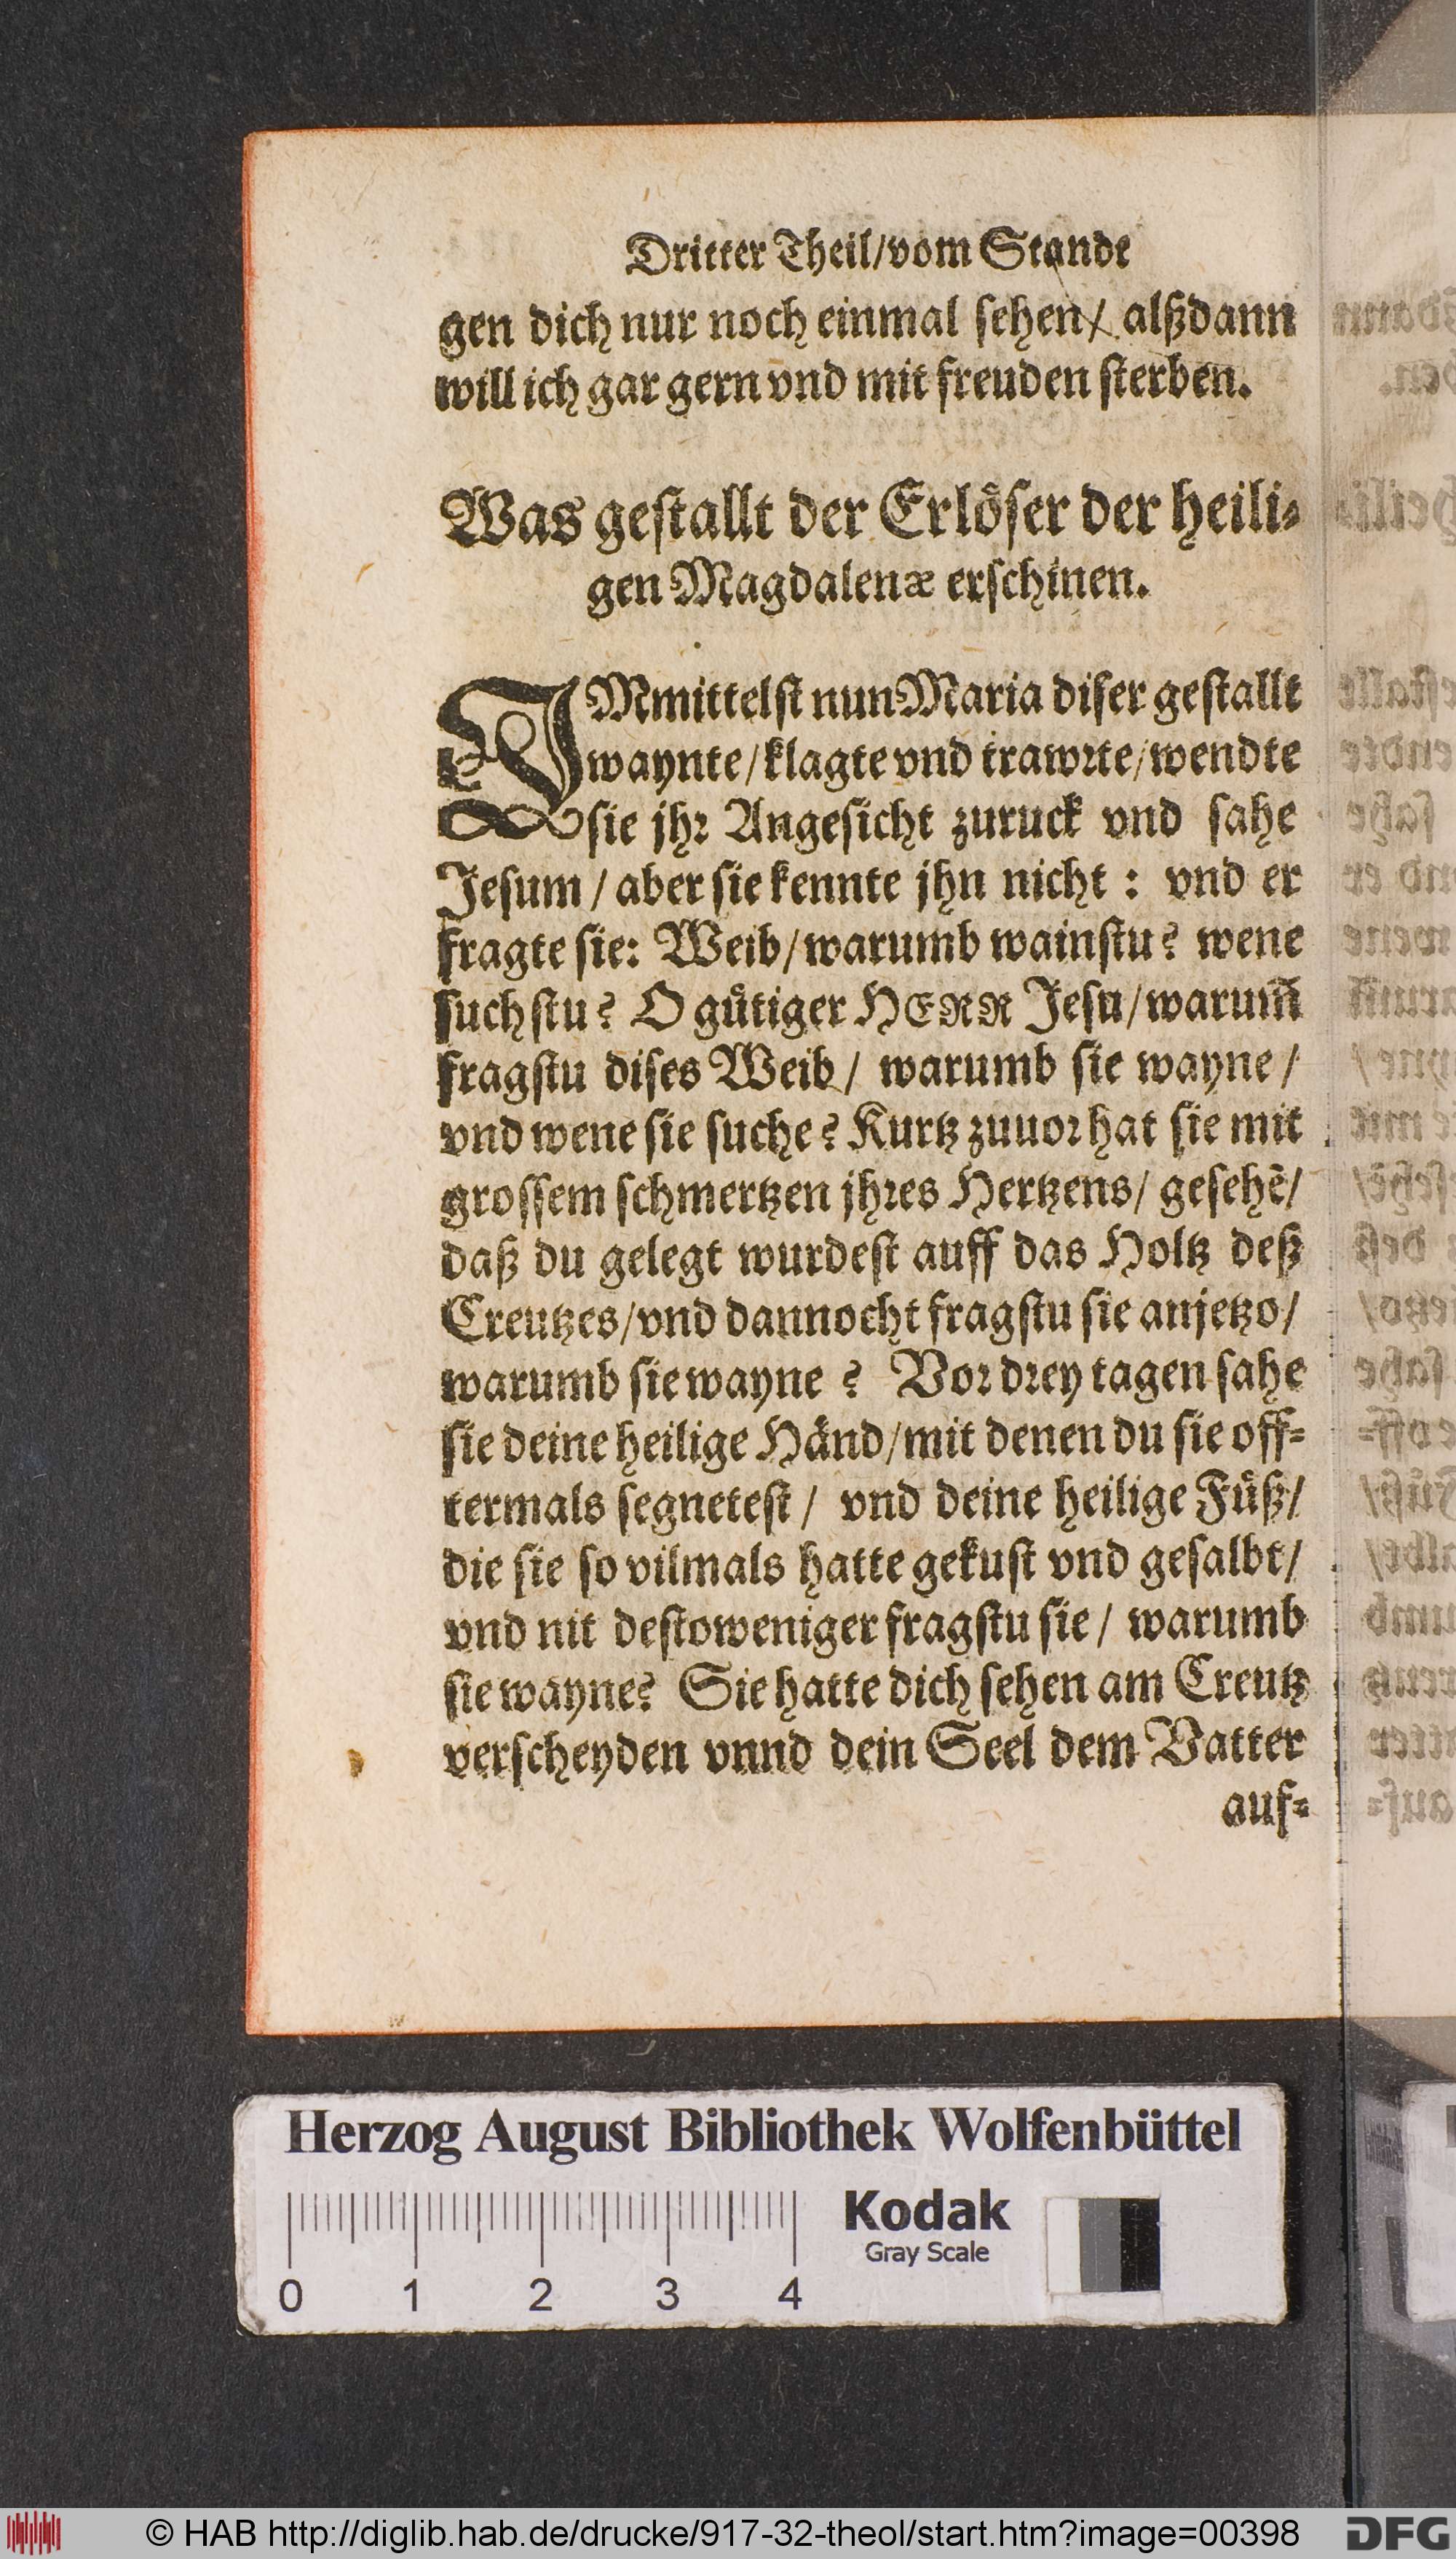 Dritter Theil/vom Stande
gen dich nur noch einmal sehen/ alßdann
will ich gar gern vnd mit freuden sterben.
Was gestallt der Erlöser der heili-
gen Magdalenæ erschinen.
IMmittelst nun Maria diser gestallt
waynte/klagte vnd trawrte/wendte
sie jhr Angesicht zuruck vnd sahe
Jesum / aber sie kennte jhn nicht : vnd er
fragte sie: Weib/warumb wainstu? wene
suchstu? O gütiger HERR Jesu/warum̃
fragstu dises Weib/ warumb sie wayne /
vnd wene sie suche? Kurtz zuuor hat sie mit
grossem schmertzen jhres Hertzens/ gesehē/
daß du gelegt wurdest auff das Holtz deß
Creutzes/vnd dannocht fragstu sie anjetzo/
warumb sie wayne ? Vor drey tagen sahe
sie deine heilige Händ/mit denen du sie off-
termals segnetest / vnd deine heilige Füß/
die sie so vilmals hatte gekust vnd gesalbt/
vnd nit destoweniger fragstu sie/ warumb
sie wayne? Sie hatte dich sehen am Creutz
verscheyden vnnd dein Seel dem Vatter
auf-
Herzog August Bibliothek Wolfenbüttel
Kodak
Gray Scale
0 1 2 3 4
© HAB http://diglib.hab.de/drucke/917-32-theol/start.htm?image=00398
DFG